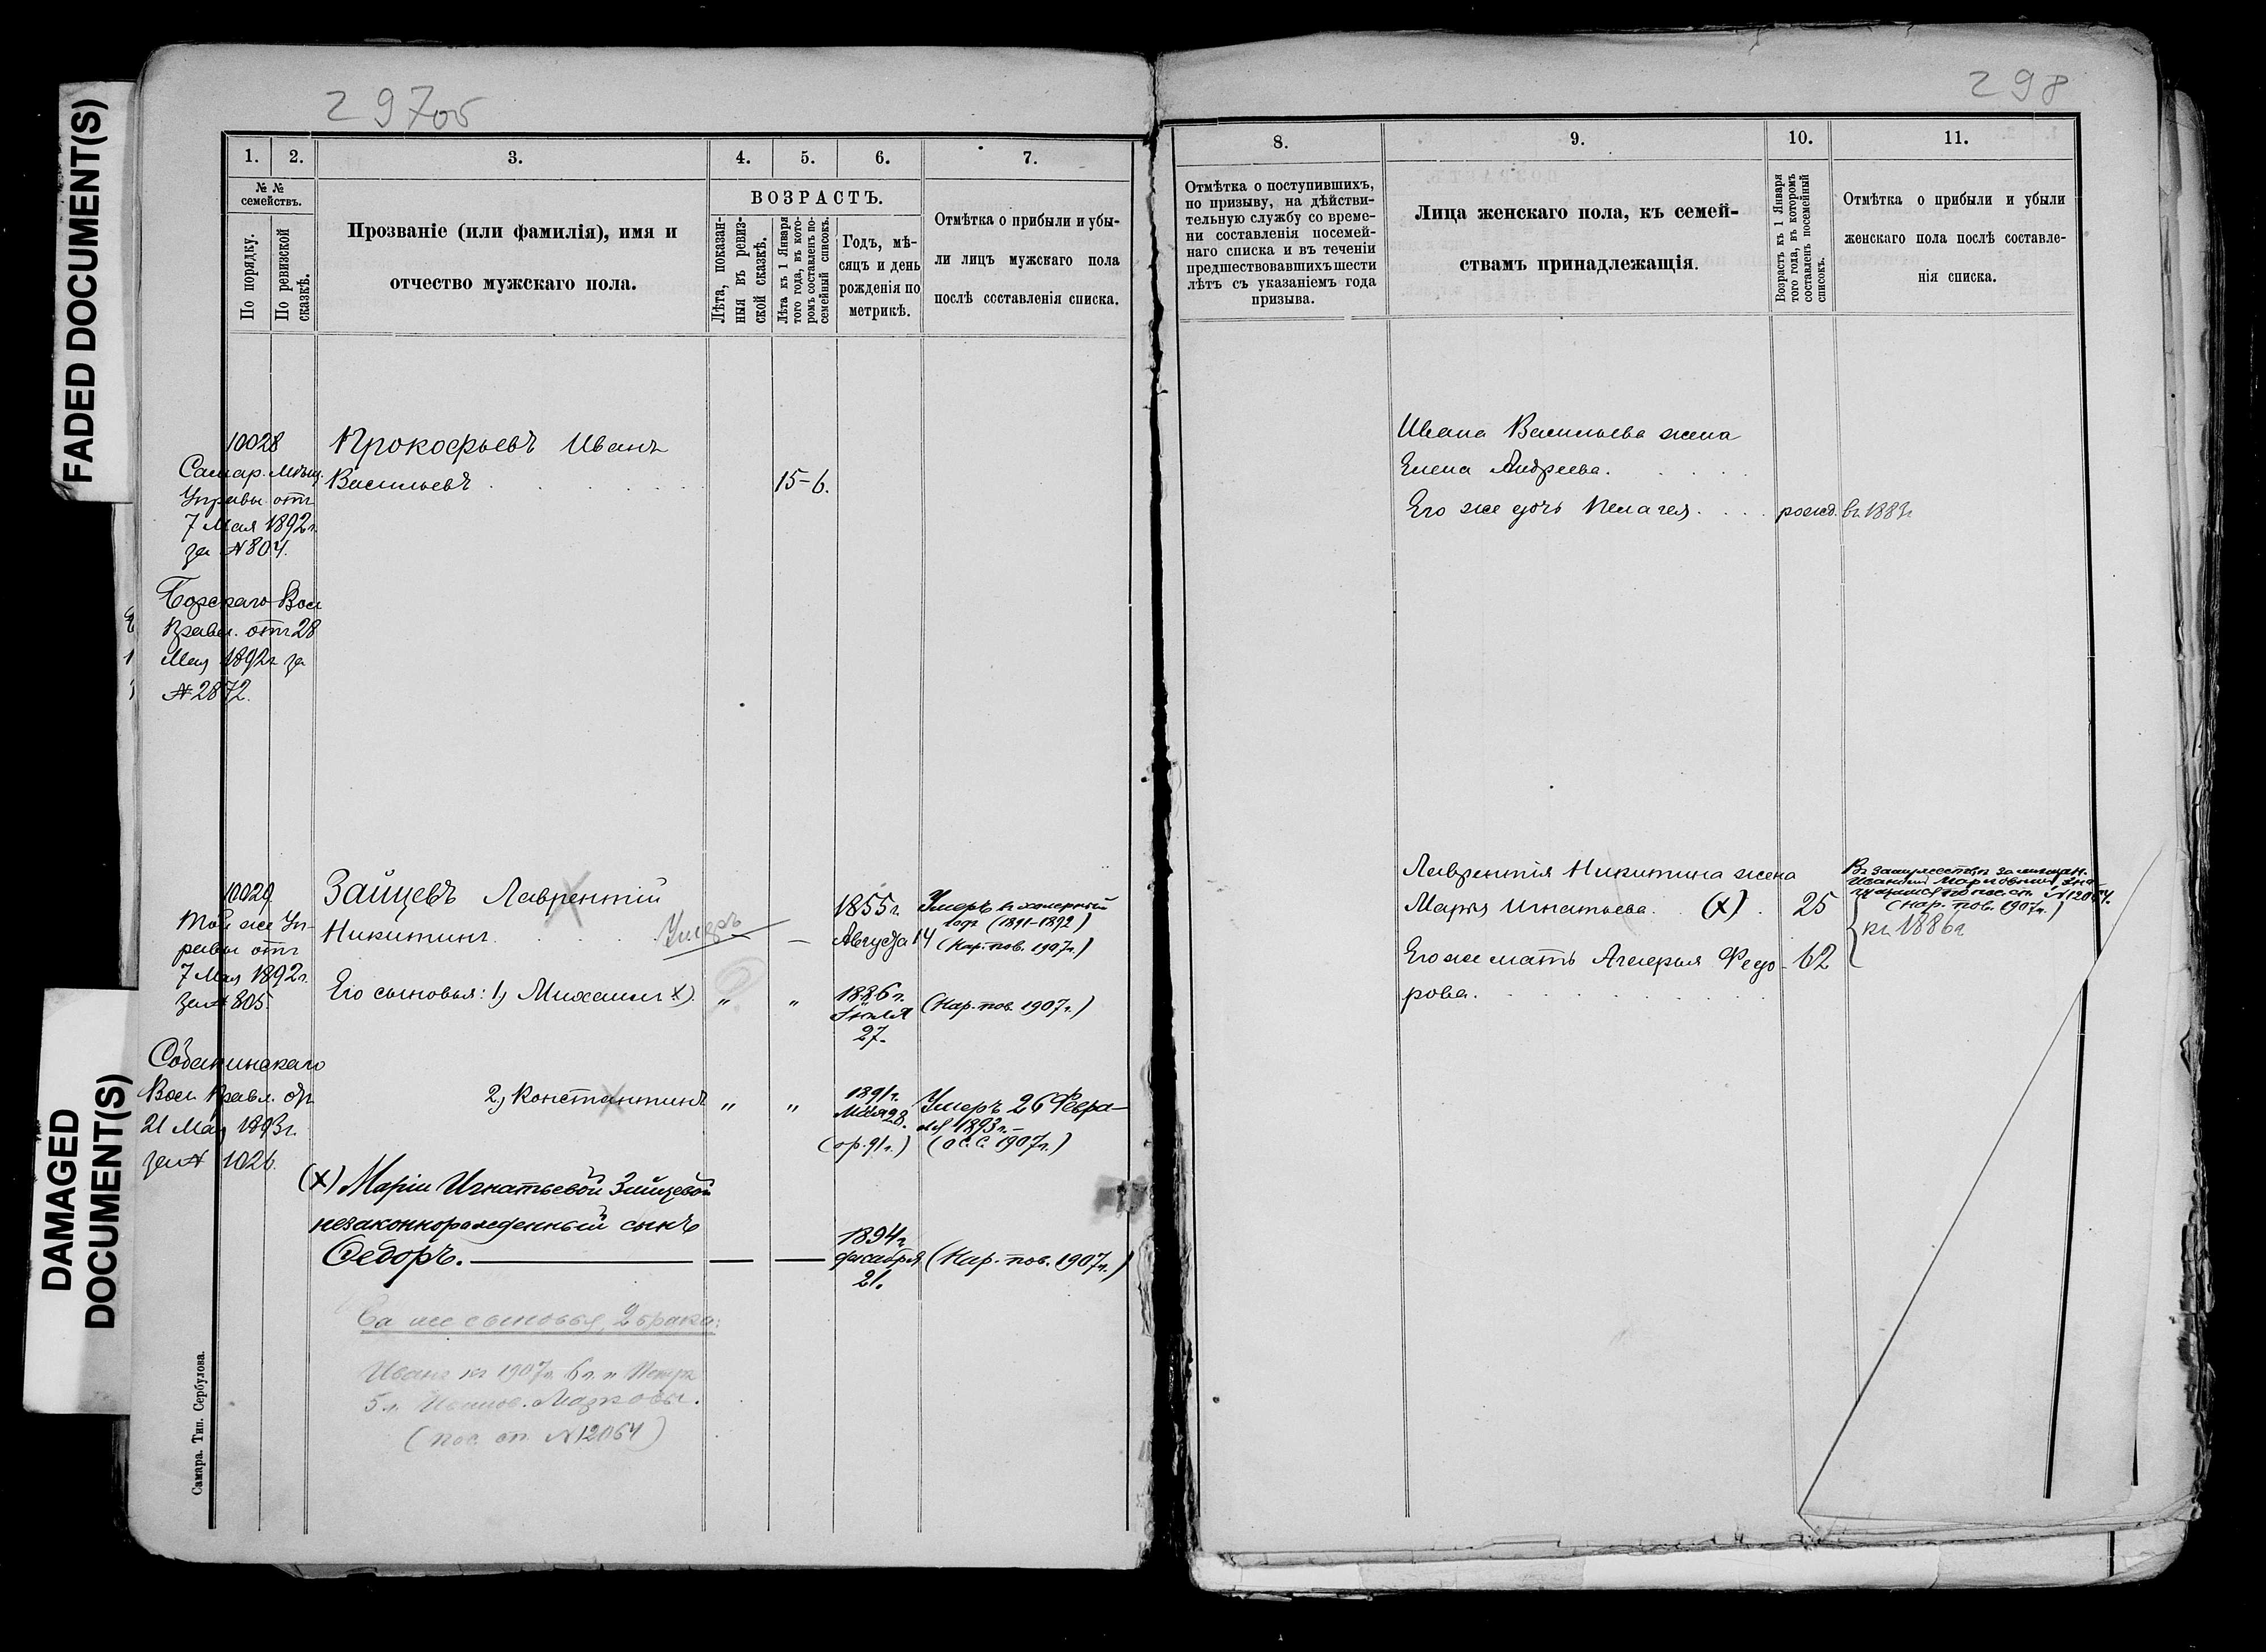 FADED DOCUMENT(S)
DAMAGED
DOCUMENT(S)
297об
1. 2. 3. 4. 5. 6. 7.
№ №
семействъ.
По порядку.
По ревизской
сказкѣ.
Прозваніе (или фамилія), имя и
отчество мужскаго пола.
ВОЗРАСТЪ.
Лѣта, показан-
ныя въ ревиз-
ской сказкѣ.
Лѣта къ 1 Января
того года, въ кото-
ромъ составленъ по-
семейный списокъ.
Годъ, мѣ-
сяцъ и день
рожденія по
метрикѣ.
Отмѣтка о прибыли и убы-
ли лицъ мужскаго пола
послѣ составленія списка.
10028
Самар. Мѣщ.
Управы отъ
7 Мая 1892г.
за №804.
Борскаго Вол
Правл. отъ 28
Мая 1892г за
№2872.
Прокофьевъ Иванъ
Васильевъ
15-6.
10029
Той же Уп-
равы отъ
7 Мая 1892г.
за № 805.
Вол. Правл. отъ
21 Мая 1893г.
за № 1026.
Зайцевъ Лаврентій
Никитинъ.
Умеръ
—
1855г.
Августа 14
Умеръ въ холерный
годъ (1891-1892)
(Нар. пов. 1907г.)
Его сыновья: 1) Михаилъ х).
" "
1886г.
Іюля
27.
(Нар. пов. 1907г.)
2) Константинъ " "
1891г.
28.
(ор. 91г.)
Умеръ 26 Февра-
ля 1893г.-
(о с.с. 1907г.)
(х) Маріи Игнатьевой Зайцевой
незаконнорожденный сынъ
Федоръ.
1894г
декабря
21.
(Нар. пов. 1907г.)
Ея же сыновья, 2 брака:
Иванъ къ 1907г. 6л. и Петръ
5л. Марковы.
(пос. сп. №12064)
Самара. Тип. Сербулова.
298
8. 9. 10. 11.
Отмѣтка о поступившихъ,
по призыву, на дѣйстви-
тельную службу со време-
ни составленія посемей-
наго списка и въ теченіи
предшествовавшихъ шести
лѣтъ съ указаніемъ года
призыва.
Лица женскаго пола, къ семей-
ствамъ принадлежащія.
Возрастъ къ 1 Января
того года, въ которомъ
составленъ посемейный
списокъ.
Отмѣтка о прибыли и убыли
женскаго пола послѣ составле-
нія списка.
Ивана Васильева жена
Елена Андреева.
Его же дочь Пелагея.
рожд. въ 1883г
Лаврентія Никитина жена
Марья Игнатьева. (х). 25
Его же мать Федо-
рова.
62
Въ замужествѣ за мѣщан.
Иваномъ Марковымъ, зна-
чущимся по пос. сп. №12064.
(Нар. пов. 1907г.)
къ 1886г